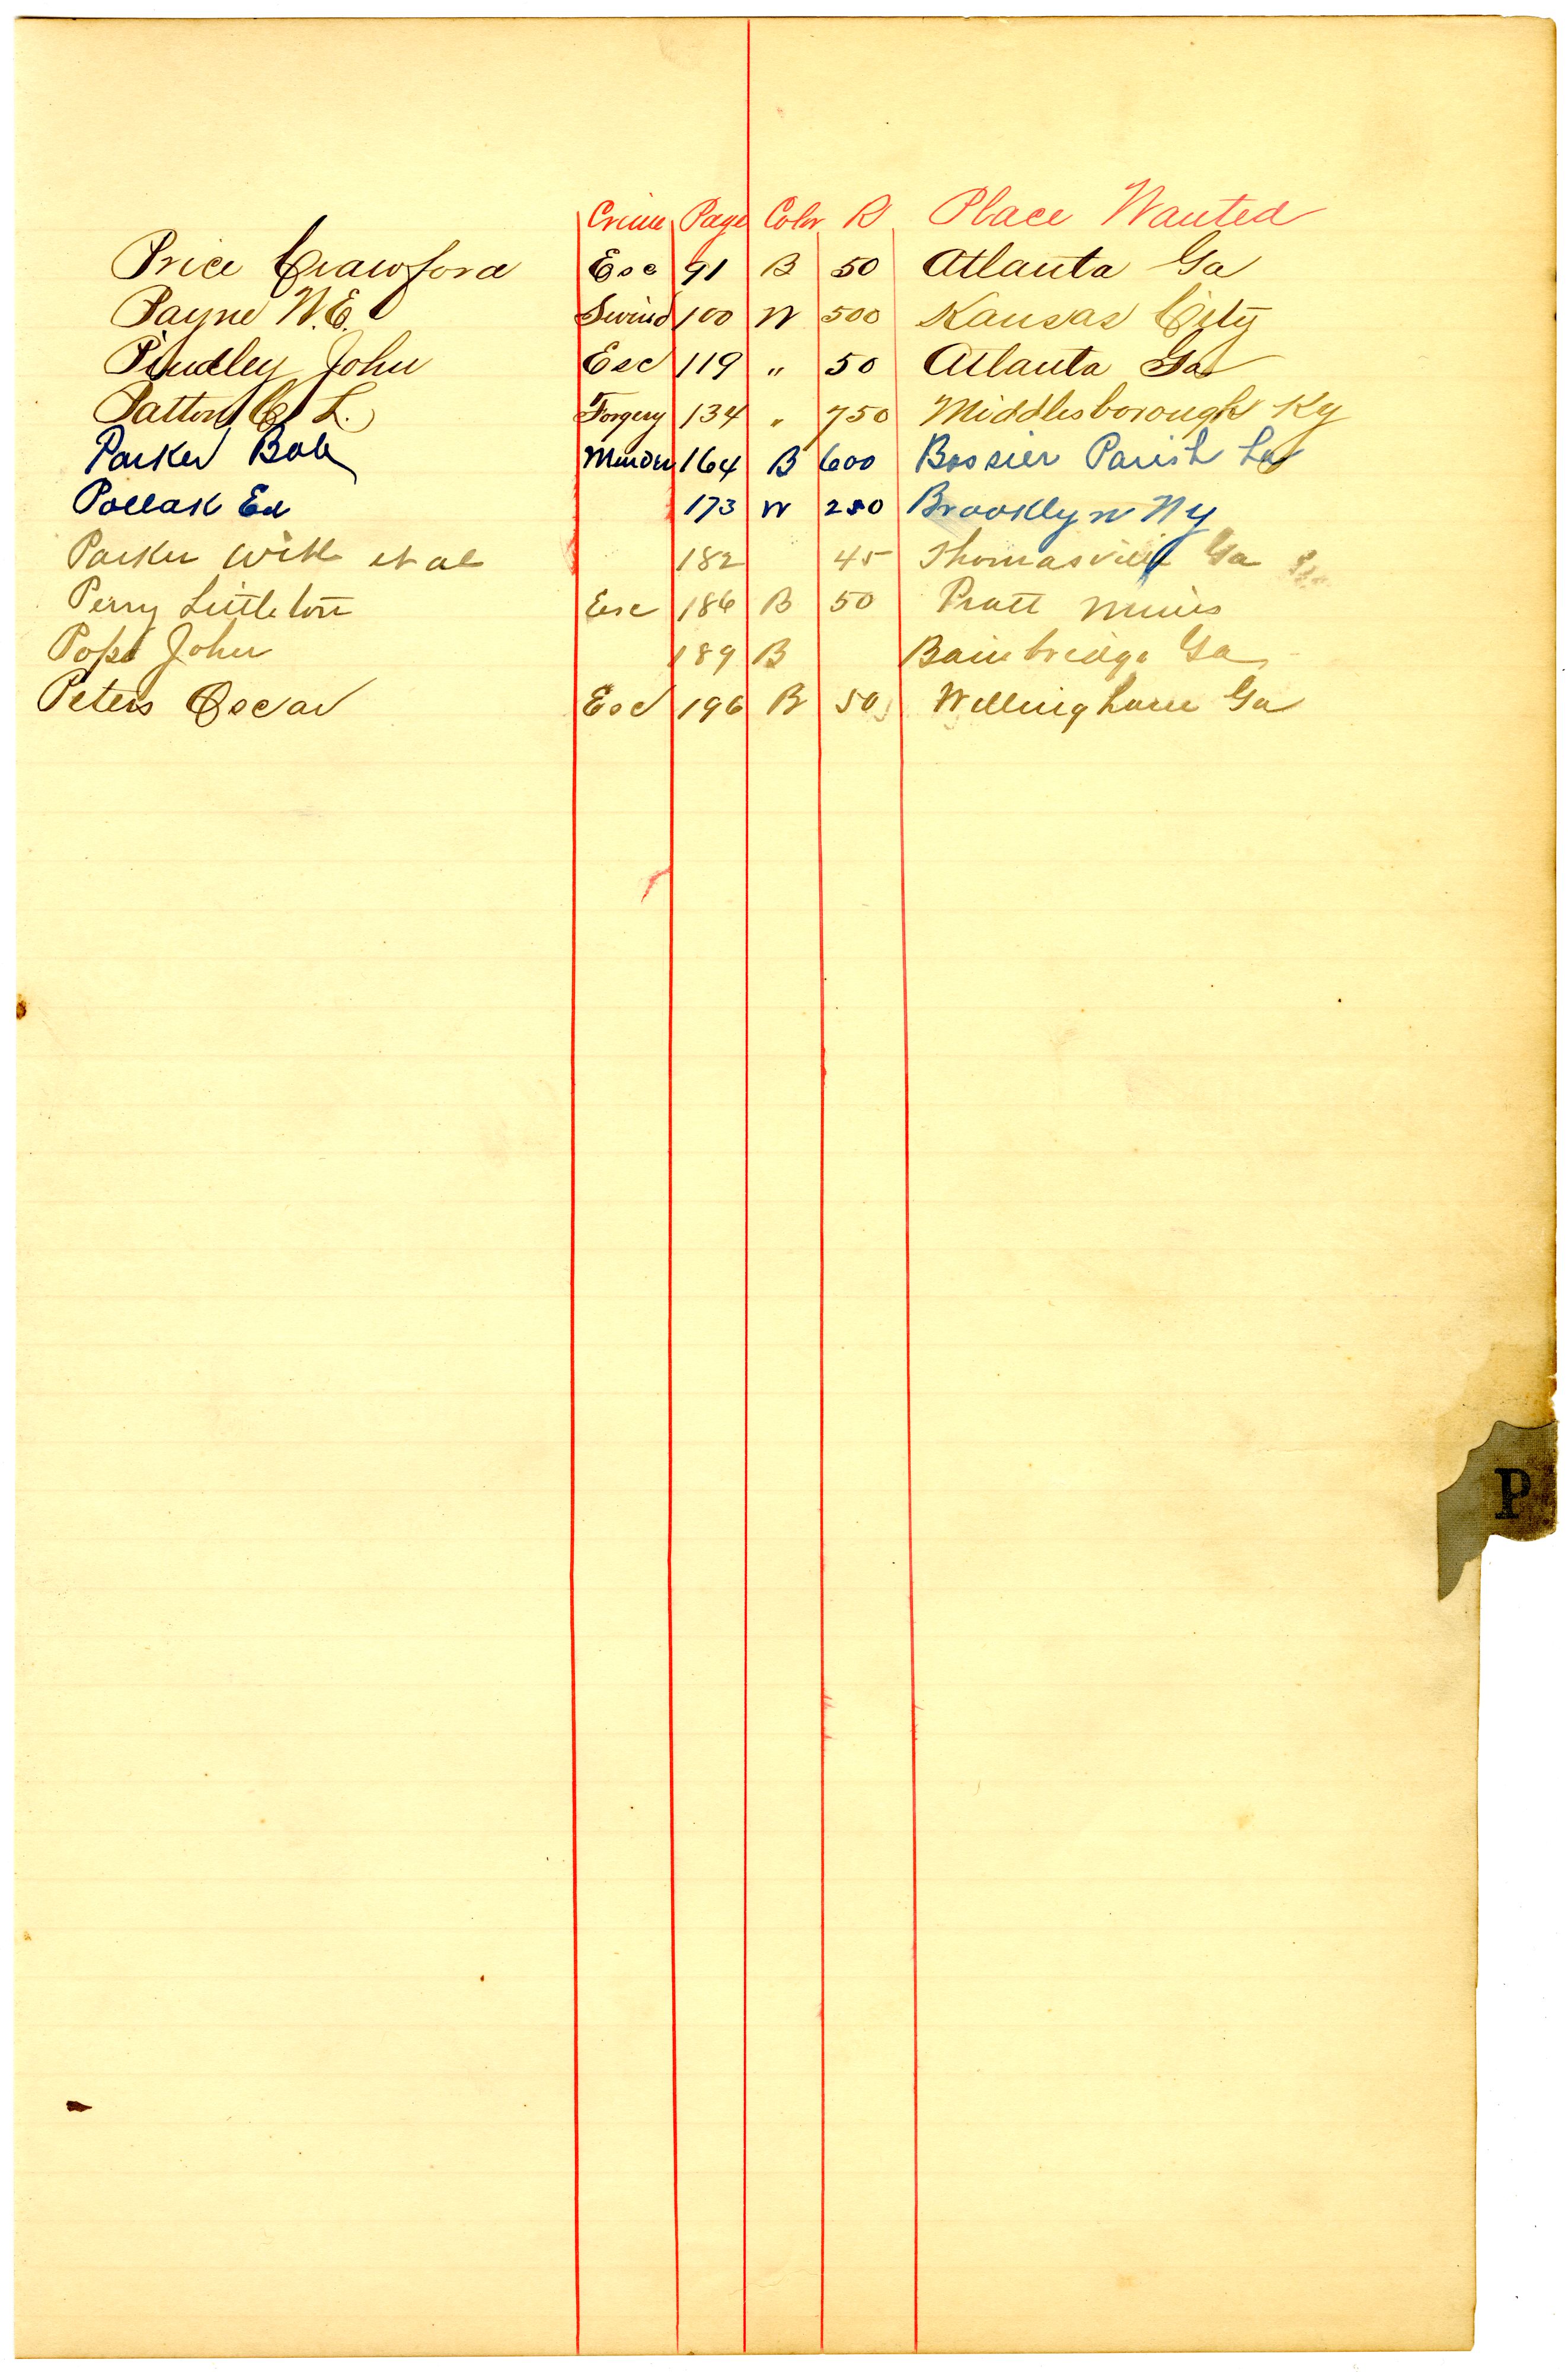 Crime Page Color R Place Wanted
Price Crawford Esc 91 B 50 Atlanta Ga
Payne W.E. Swind 100 W 500 Kansas City
John Esc 119 " 50 Atlanta Ga
Patton C. L. Forgery 134 " 750 Middlesborough Ky
Parker Bob Murder 164 B 600 Bossier Parish La
Pollak Ed 173 W 250 Brooklyn Ny
Parker Will et al 182 45 Thomasville Ga
Perry Littleton Esc 186 B 50 Pratt Mines
Pope John 189 B Bainbridge Ga
Peters Oscar Esc 196 B 50 Willingham Ga
P